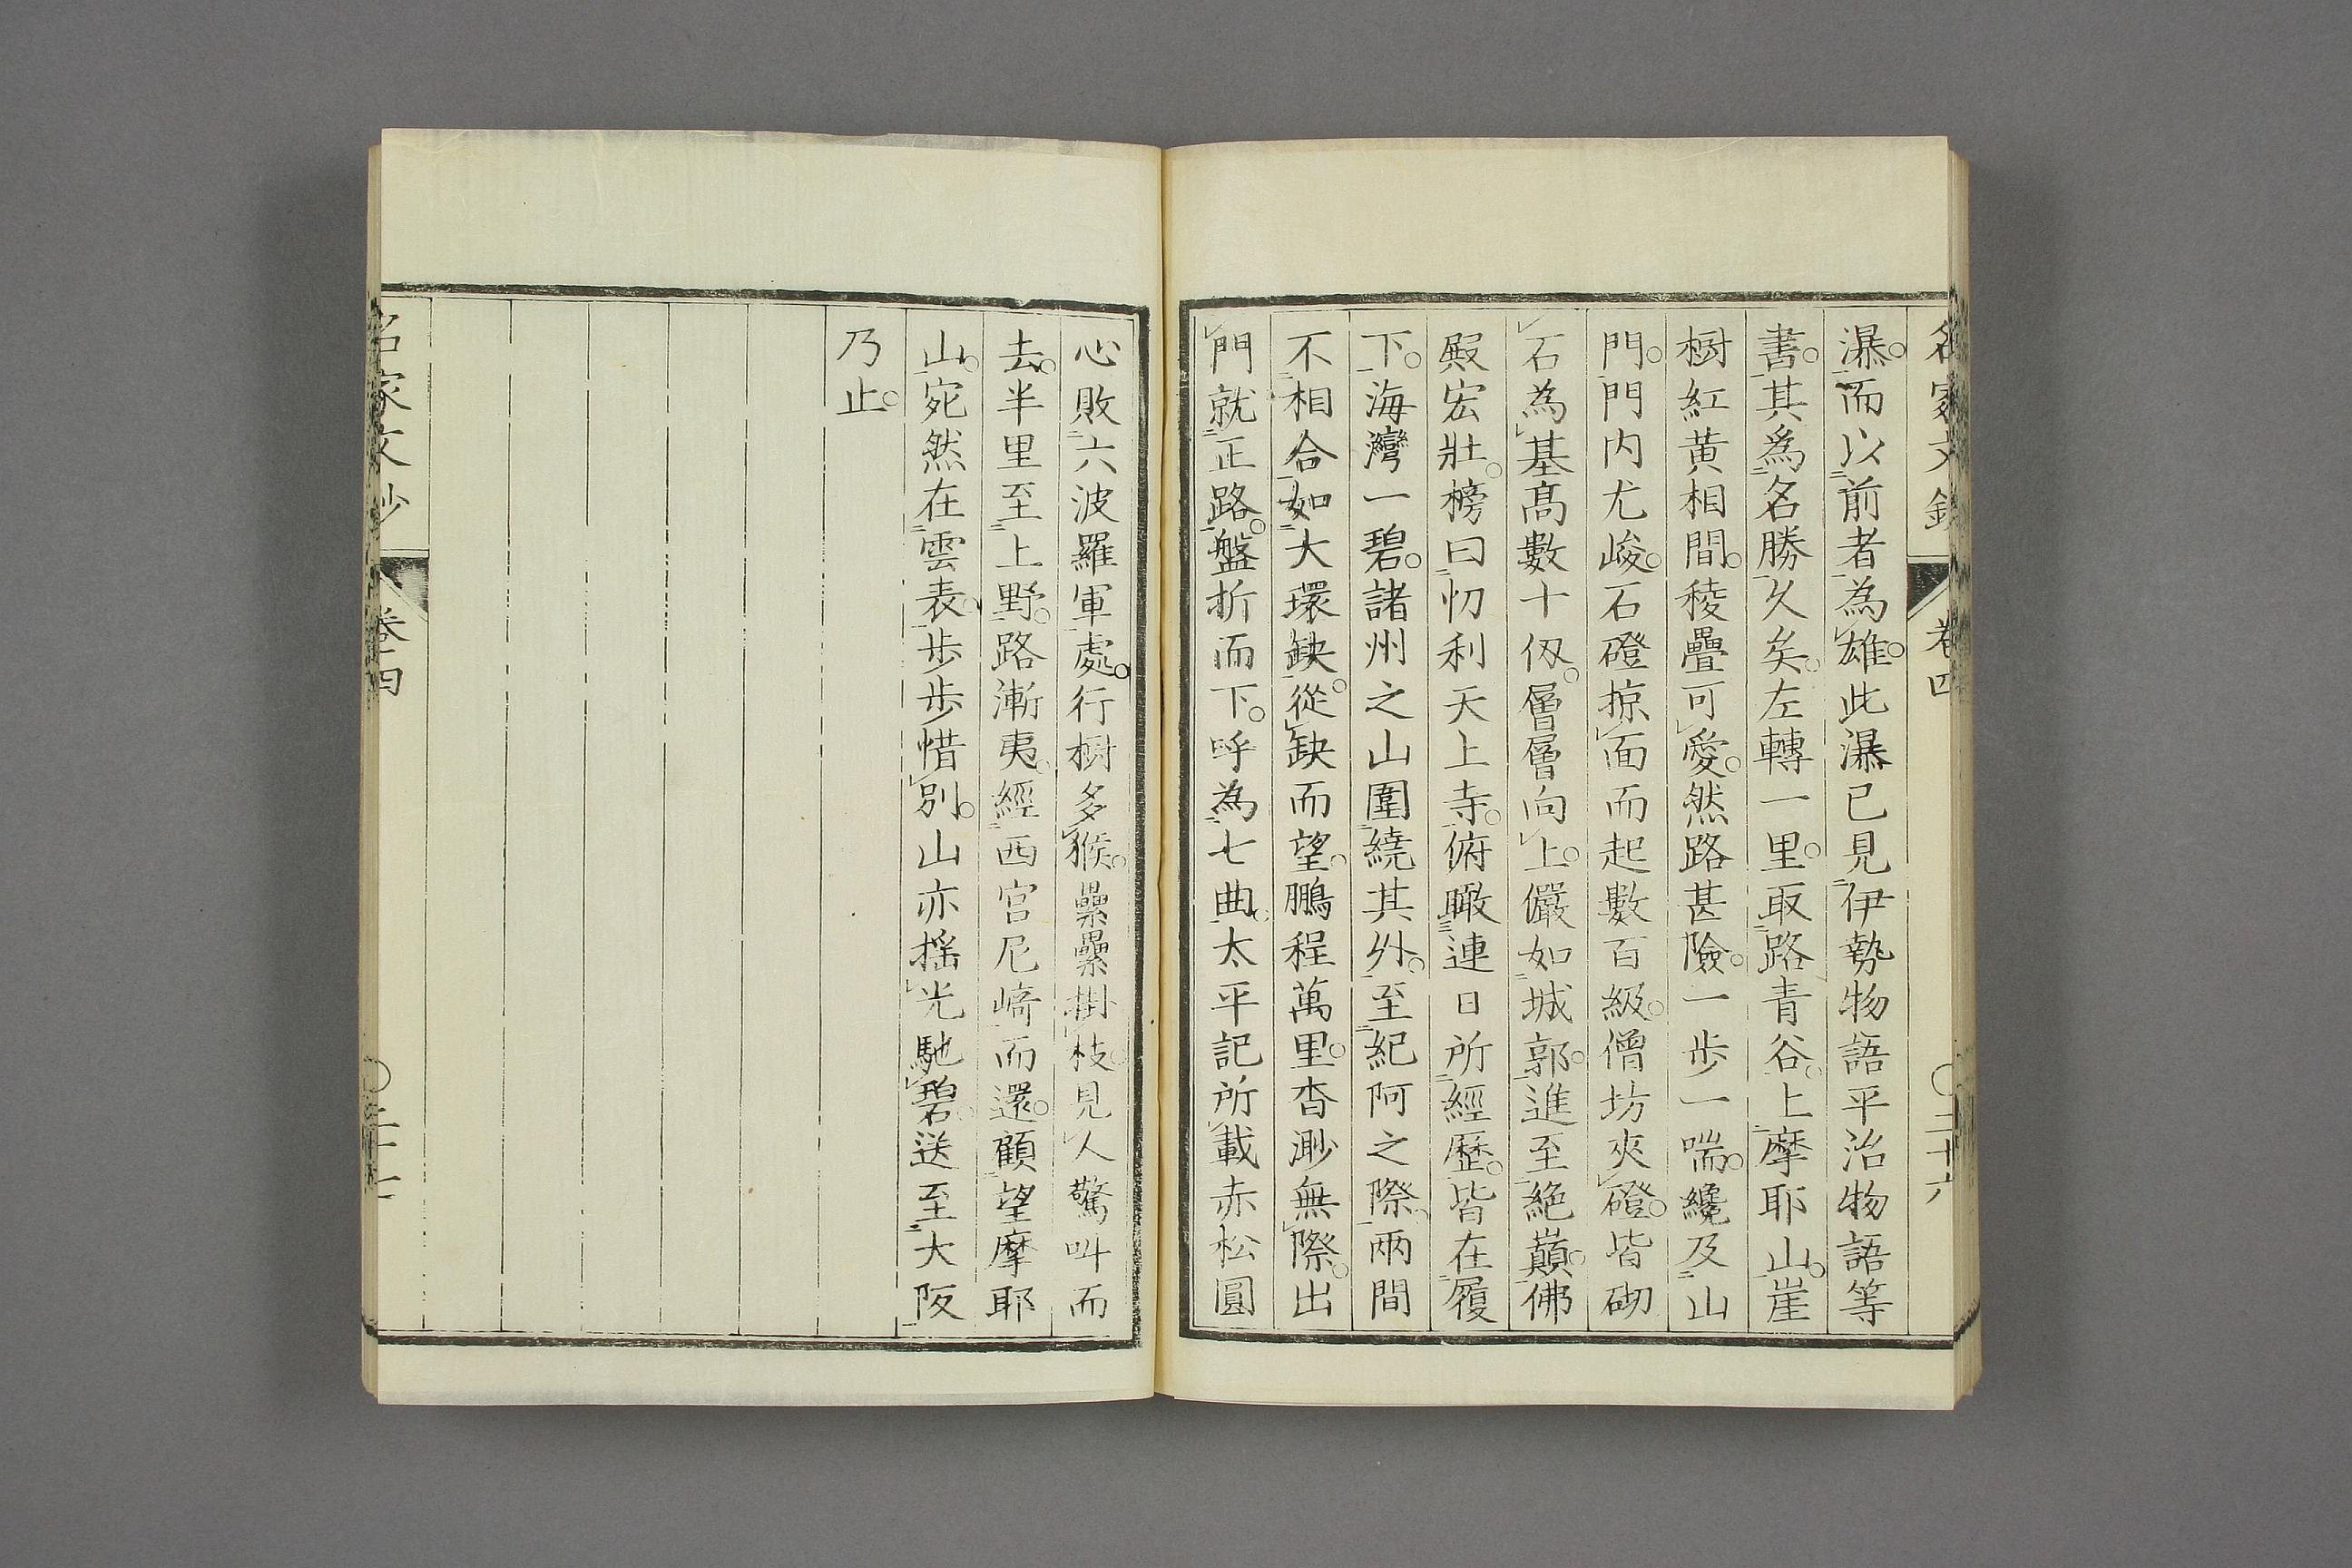 名家文鈔 卷四 〇二十六
瀑。而以前者為雄。此瀑已見伊勢物語平治物語等
書。其爲名勝久矣。左轉一里。取路青谷。上摩耶山。崖
樹紅黃相間。稜疊可愛。然路甚險。一歩一喘。纔及山
門。門内尤峻。石磴掠面而起數百級。僧坊夾磴。皆砌
石為基高數十仭。層層向上。儼如城郭。進至絶巔。佛
殿宏壯。榜曰忉利天上寺。俯瞰連日所經歷。皆在履
下。海灣一碧。諸州之山圍繞其外。至紀阿之際。兩間
不相合如大環缺。從缺而望。鵬程萬里。杳渺無際。出
門就正路。盤折而下。呼為七曲。太平記所載赤松圓
心敗六波羅軍處。行樹多猴。纍纍掛枝。見人驚叫而
去。半里至上野。路漸夷。經西宮尼﨑而還。顧望摩耶
山。宛然在雲表。歩歩惜別。山亦揺光馳碧。送至大阪
乃止。
名家文鈔 卷四 〇二十七